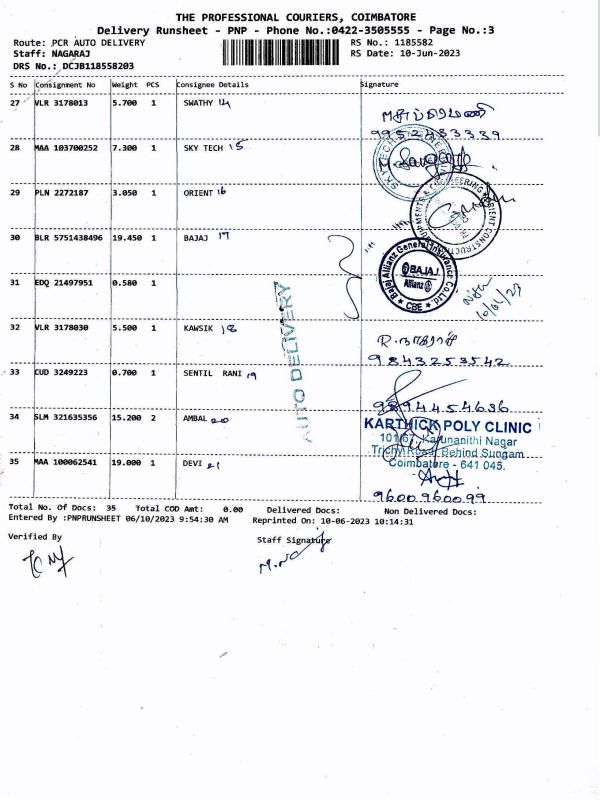 THE PROFESSIONAL COURIERS, COIMBATORE
Delivery Runsheet - PNP - Phone No.:0422-3505555 - Page No.:3
Route: PCR AUTO DELIVERY RS No.: 1185582
Staff: NAGARAJ RS Date: 10-Jun-2023
DRS No.: DCJB118558203
S No Consignment No Weight PCS Consignee Details Signature
27 VLR 3178013 5.700 1 SWATHY 14
9952433339
28 MAA 103700252 7.300 1 SKY TECH 15
29 PLN 2272187 3.050 1 ORIENT 16
30 BLR 5751438496 19.450 1 BAJAJ 17
Bajaj Allianz General Insurance Co.Ltd
BAJAJ
Allianz
* CBE *
31 EDQ 21497951 0.580 1
32 VLR 3178030 5.500 1 KAWSIK 18
9843253542
AUTO DELIVERY
33 CUD 3249223 0.700 1 SENTIL RANI 19
9894454636
34 SLM 321635356 15.200 2 AMBAL 20
KARTHICK POLY CLINIC
101/67, Karunanithi Nagar
Trichy Road, Behind Sungam
Coimbatore - 641 045.
35 MAA 100062541 19.000 1 DEVI 21
9600960099
Total No. Of Docs: 35 Total COD Amt: 0.00 Delivered Docs: Non Delivered Docs:
Entered By :PNPRUNSHEET 06/10/2023 9:54:30 AM Reprinted On: 10-06-2023 10:14:31
Verified By Staff Signature